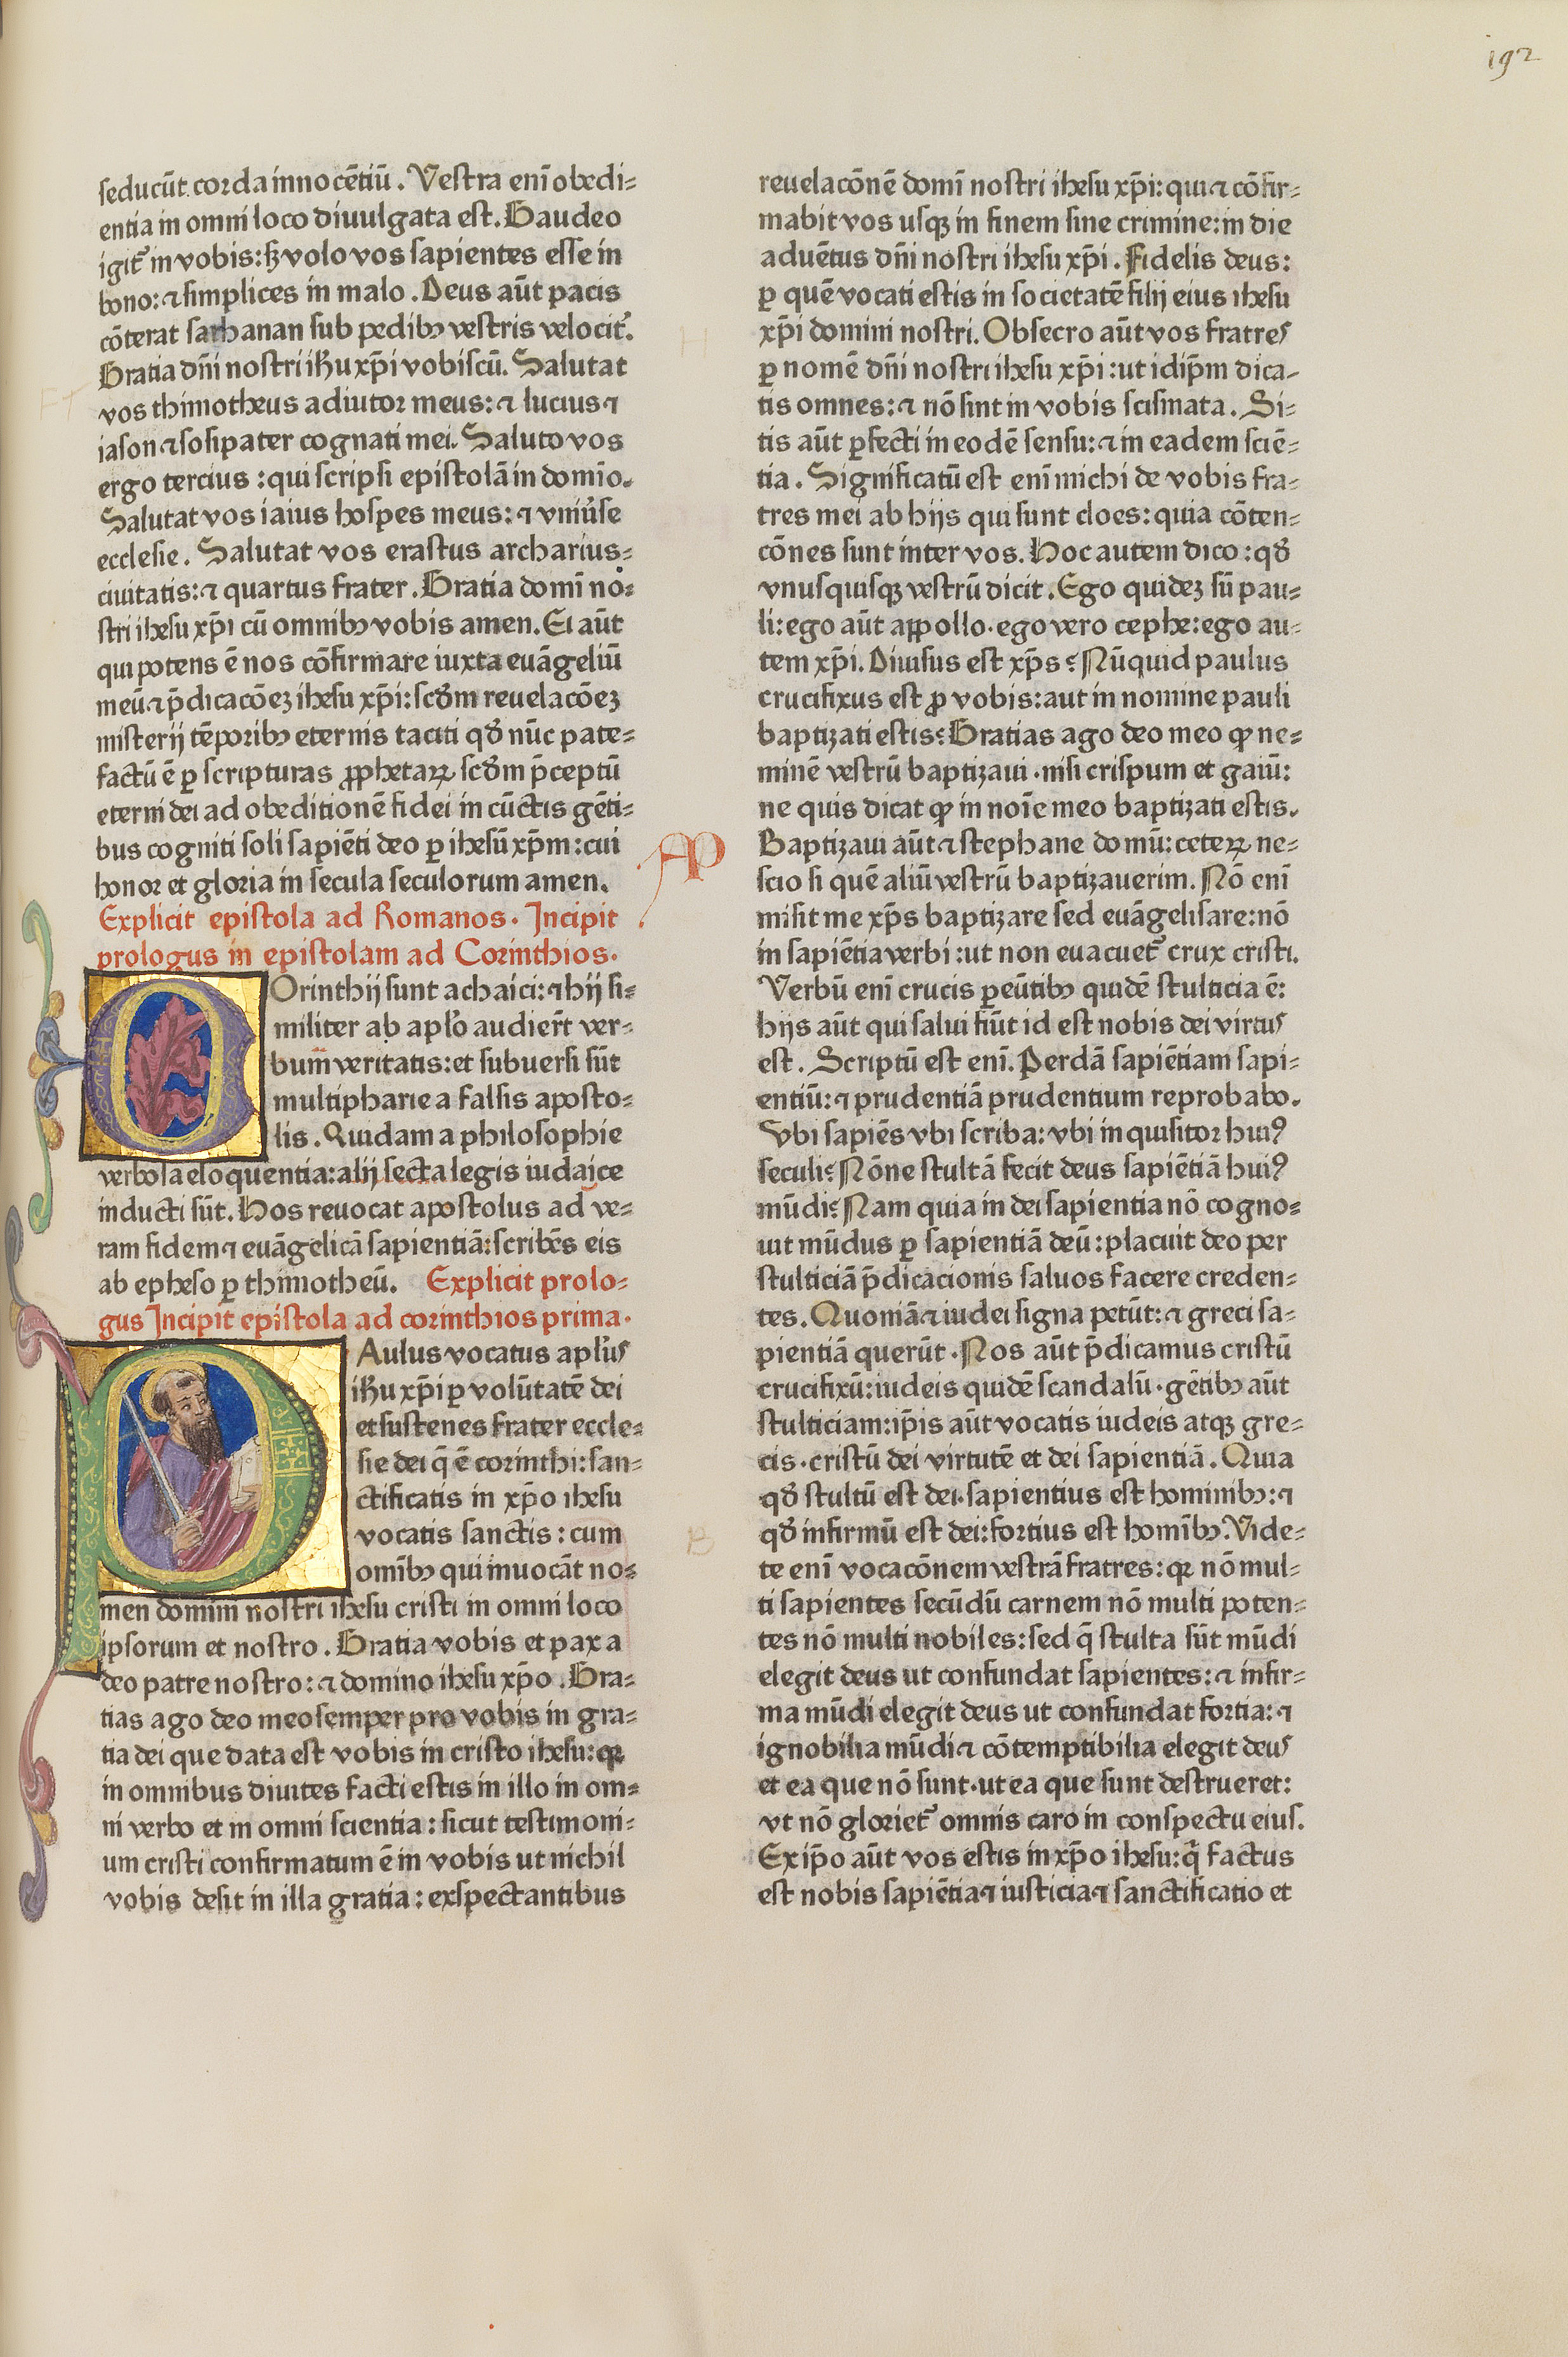 192
seducūt corda innocētiū. Vestra enī obedi=
entia in omni loco diuulgata est. Gaudeo
igit᷑ in vobis: sꝫ volo vos sapientes esse in
bono: ⁊ simplices in malo. Deus aūt pacis
cōterat sathanan sub pedibꝰ vestris velocit᷑.
Gratia dn̄i nostri ihū xp̄i vobiscū. Salutat
vos thimotheus adiutor meus: ⁊ lucius ⁊
iason ⁊ sosipater cognati mei. Saluto vos
ergo tercius: qui scripsi epistolā in domīo.
Salutat vos iaius hospes meus: ⁊ vniu᷑se
ecclesie. Salutat vos erastus archarius=
ciuitatis: ⁊ quartus frater. Gratia domī no=
stri ihesu xp̄i cū omnibꝰ vobis amen. Ei aūt
qui potens ē nos cōfirmare iuxta euāgeliū
meū ⁊ p̄dicacōeꝫ ihesu xp̄i: scd̄m reuelacōeꝫ
misterij tēporibꝰ eternis taciti qd̄ nūc pate=
factū ē ꝑ scripturas ꝓphetaꝝ scd̄m p̄ceptū
eterni dei ad obeditionē fidei in cūctis gēti=
bus cogniti soli sapiēti deo ꝑ ihesū xp̄m: cui
honor et gloria in secula seculorum amen.
Explicit epistola ad Romanos. Incipit
prologus in epistolam ad Corinthios.
COrinthij sunt achaici: ⁊ hij si=
militer ab apl̄o audier̄t ver=
bum̄ veritatis: et subuersi sūt
multipharie a falsis aposto=
lis. Quidam a philosophie
verbosa eloquentia: alij secta legis iudaice
inducti sūt. Hos reuocat apostolus ad ve=
ram fidem ⁊ euāgelicā sapientiā: scribēs eis
ab epheso ꝑ thimotheū. Explicit prolo=
gus Incipit epistola ad corinthios prima.
PAulus vocatus apl̄us
ihū xp̄i ꝑ volūtatē dei
et sustenes frater eccle=
sie dei q̄ ē corinthi: san=
ctificatis in xp̄o ihesu
vocatis sanctis: cum
omībꝰ qui inuocāt no=
men domini nostri ihesu cristi in omni loco
ipsorum et nostro. Gratia vobis et pax a
deo patre nostro: ⁊ domino ihesu xp̄o. Gra=
tias ago deo meo semper pro vobis in gra=
tia dei que data est vobis in cristo ihesu: qꝛ
in omnibus diuites facti estis in illo in om=
ni verbo et in omni scientia: sicut testimoni=
um cristi confirmatum ē in vobis ut nichil
vobis desit in illa gratia: exspectantibus
reuelacōnē domī nostri ihesu xp̄i: qui ⁊ cōfir=
mabit vos usqꝫ in finem sine crimine: in die
aduētus dn̄i nostri ihesu xp̄i. Fidelis deus:
ꝑ quē vocati estis in societatē filij eius ihesu
xp̄i domini nostri. Obsecro aūt vos fratres
ꝑ nomē dn̄i nostri ihesu xp̄i: ut idip̄m dica=
tis omnes: ⁊ nō sint in vobis scismata. Si=
tis aūt ꝑfecti in eodē sensu: ⁊ in eadem sciē=
tia. Significatū est enī michi de vobis fra=
tres mei ab hijs qui sunt cloes: quia cōten=
cōnes sunt inter vos. Hoc autem dico: qd̄
vnusquisqꝫ vestrū dicit. Ego quideꝫ sū pau=
li: ego aūt appollo. ego vero cephe: ego au=
tem xp̄i. Diuisus est xp̄s? Nūquid paulus
crucifixus est ꝓ vobis: aut in nomine pauli
baptizati estis? Gratias ago deo meo ꝙ ne=
minē vestrū baptizaui. nisi crispum et gaiū:
ne quis dicat ꝙ in noīe meo baptizati estis.
Baptizaui aūt ⁊ stephane domū: ceteꝝ ne=
scio si quē aliū vestrū baptizauerim. Nō enī
misit me xp̄s baptizare sed euāgelisare: nō
in sapiētia verbi: ut non euacuet᷑ crux cristi.
Verbū enī crucis ꝑeūtibꝰ quidē stulticia ē:
hijs aūt qui salui fiūt id est nobis dei virtus
est. Scriptū est enī. Perdā sapiētiam sapi=
entiū: ⁊ prudentiā prudentium reprobabo.
Vbi sapiēs vbi scriba: vbi inquisitor huiꝰ
seculi? Nōne stultā fecit deus sapiētiā huiꝰ
mūdi? Nam quia in dei sapientia nō cogno=
uit mūdus ꝑ sapientiā deū: placuit deo per
stulticiā p̄dicacionis saluos facere creden=
tes. Quoniā ⁊ iudei signa petūt: ⁊ greci sa=
pientiā querūt. Nos aūt p̄dicamus cristū
crucifixū: iudeis quidē scandalū. gētibꝰ aūt
stulticiam: ip̄is aūt vocatis iudeis atqꝫ gre=
cis. cristū dei virtutē et dei sapientiā. Quia
qd̄ stultū est dei. sapientius est hominibꝰ: ⁊
qd̄ infirmū est dei: fortius est homībꝰ. Vide=
te enī vocacōnem vestrā fratres: qꝛ nō mul=
ti sapientes secūdū carnem nō multi poten=
tes nō multi nobiles: sed q̄ stulta sūt mūdi
elegit deus ut confundat sapientes: ⁊ infir=
ma mūdi elegit deus ut confundat fortia: ⁊
ignobilia mūdi ⁊ cōtemptibilia elegit deus
et ea que nō sunt. ut ea que sunt destrueret:
vt nō gloriet᷑ omnis caro in conspectu eius.
Ex ip̄o aūt vos estis in xp̄o ihesu: qͥ factus
est nobis sapiētia ⁊ iusticia ⁊ sanctificatio et